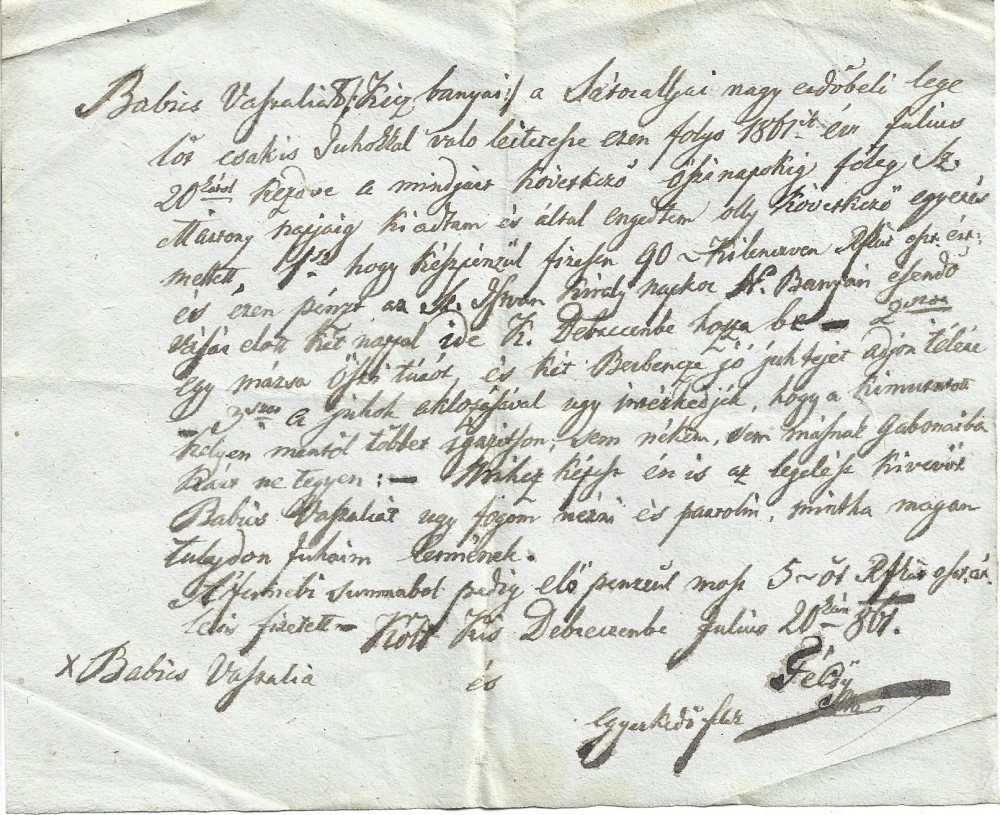 Babics Vaszalia /:Kis banyai:/ a Sátoralljai nagy erdőbeli lege
lőt csakis Juhokkal valo leitetésre ezen folyo 1861ik évi Julius
20kától kezdve a mindjárt következő őszi napokig főleg Sz.
Mártony napjáig kiadtam és által engedtem olly következő egyezés
mellett, 1ször hogy készpénzül fizessen 90 ~ Kilenczven Rftkat oszt. ért:
és ezen pénzt az Sz. István Király napkor N. Banyán esendő
vásár előtt két nappal ide K. Debreczenbe hozza be — 2szor
egy mázsa őszi túrót, és két Berbencze jó juh tejet adjon télére
— 3szor a juhok aklozásával ugy intézkedjék, hogy a kimutatott
helyen mentől többet igazitson, sem nékem, sem másnak Gabonáiba
kárt ne tegyen: — Mihez képest én is az legelést kivevőt
Babics Vaszaliát ugy fogom nézni és partolni, mintha magam
tulajdon Juhaim lennének.
A fennebi summabol pedig elő penzzül most 5 ~ öt Rftkat oszt. ért.
le is fizetett — Költ Kis Debreczenbe Julius 20kán 861.
x Babics Vaszalia és
Egyezkedő felek